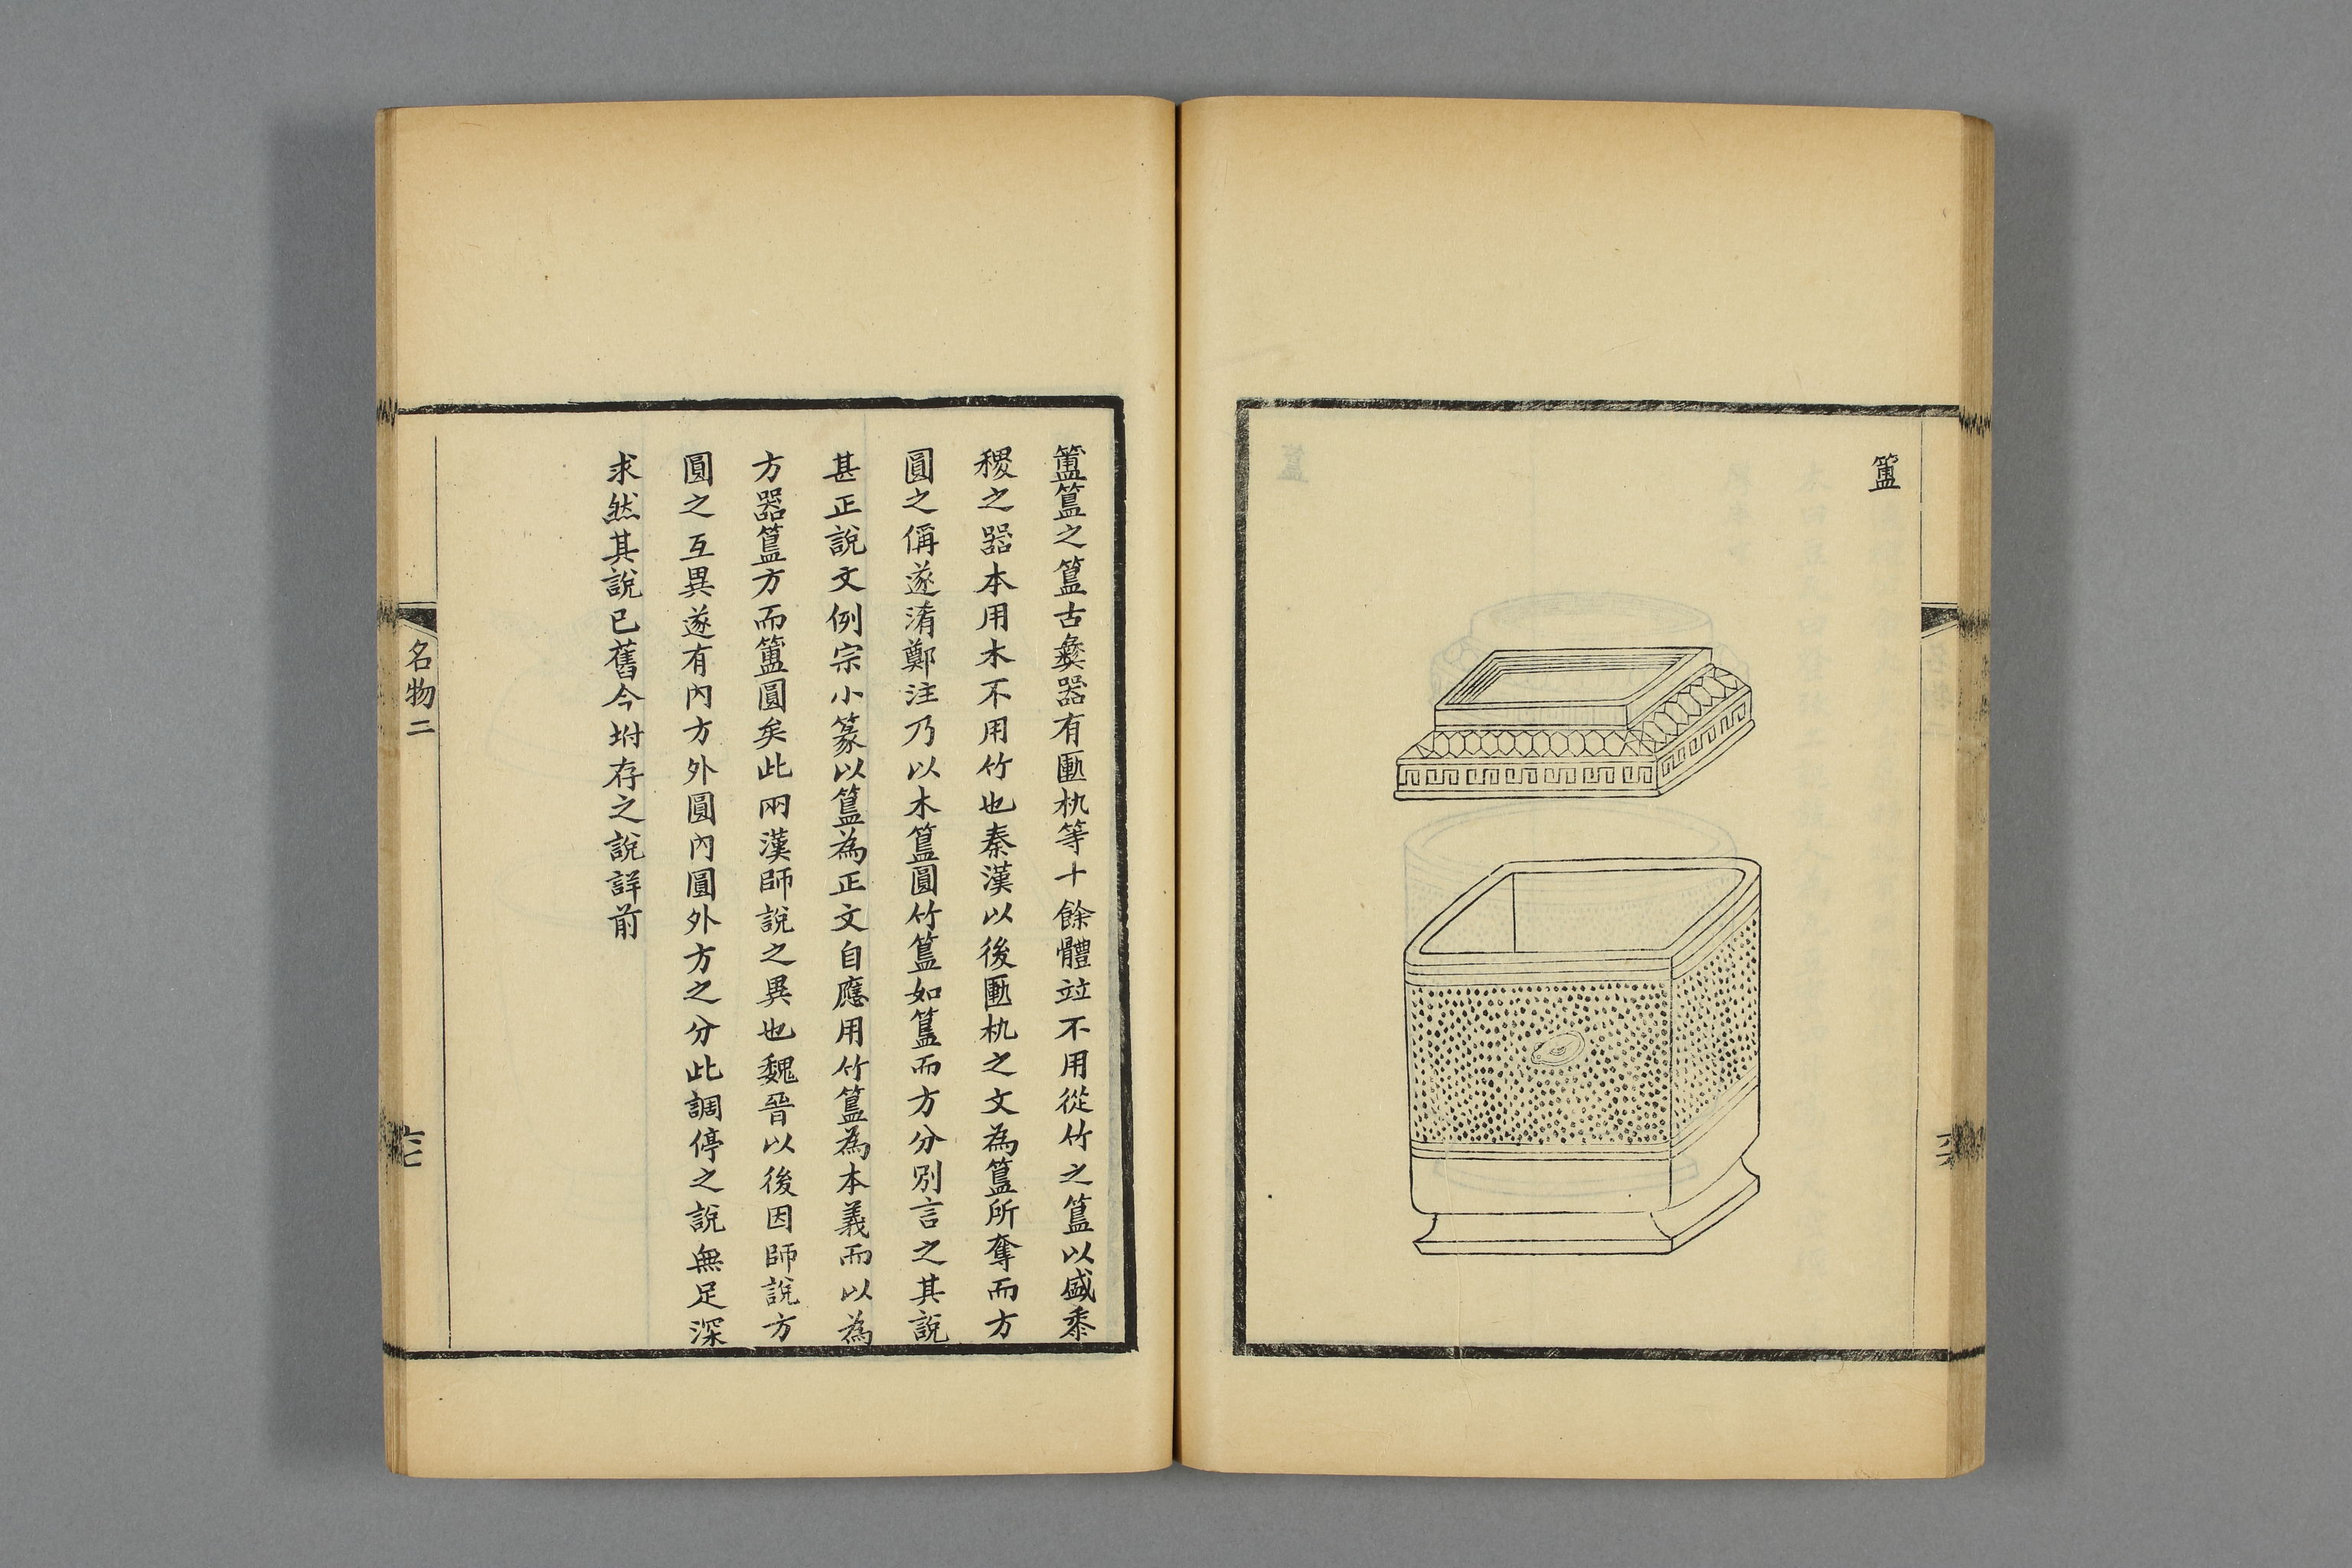 簠
簠簋之簋古彝器有匭朹等十餘體竝不用從竹之簋以盛黍
稷之器本用木不用竹也秦漢以後匭朹之文為簋所奪而方
圓之偁遂淆鄭注乃以木簋圓竹簋如簋而方分別言之其說
甚正說文例宗小篆以簋為正文自應用竹簋為本義而以為
方器簋方而簠圓矣此兩漢師說之異也魏晉以後因師說方
圓之互異遂有內方外圓內圓外方之分此調停之說無足深
求然其說已舊今坿存之說詳前
名物二